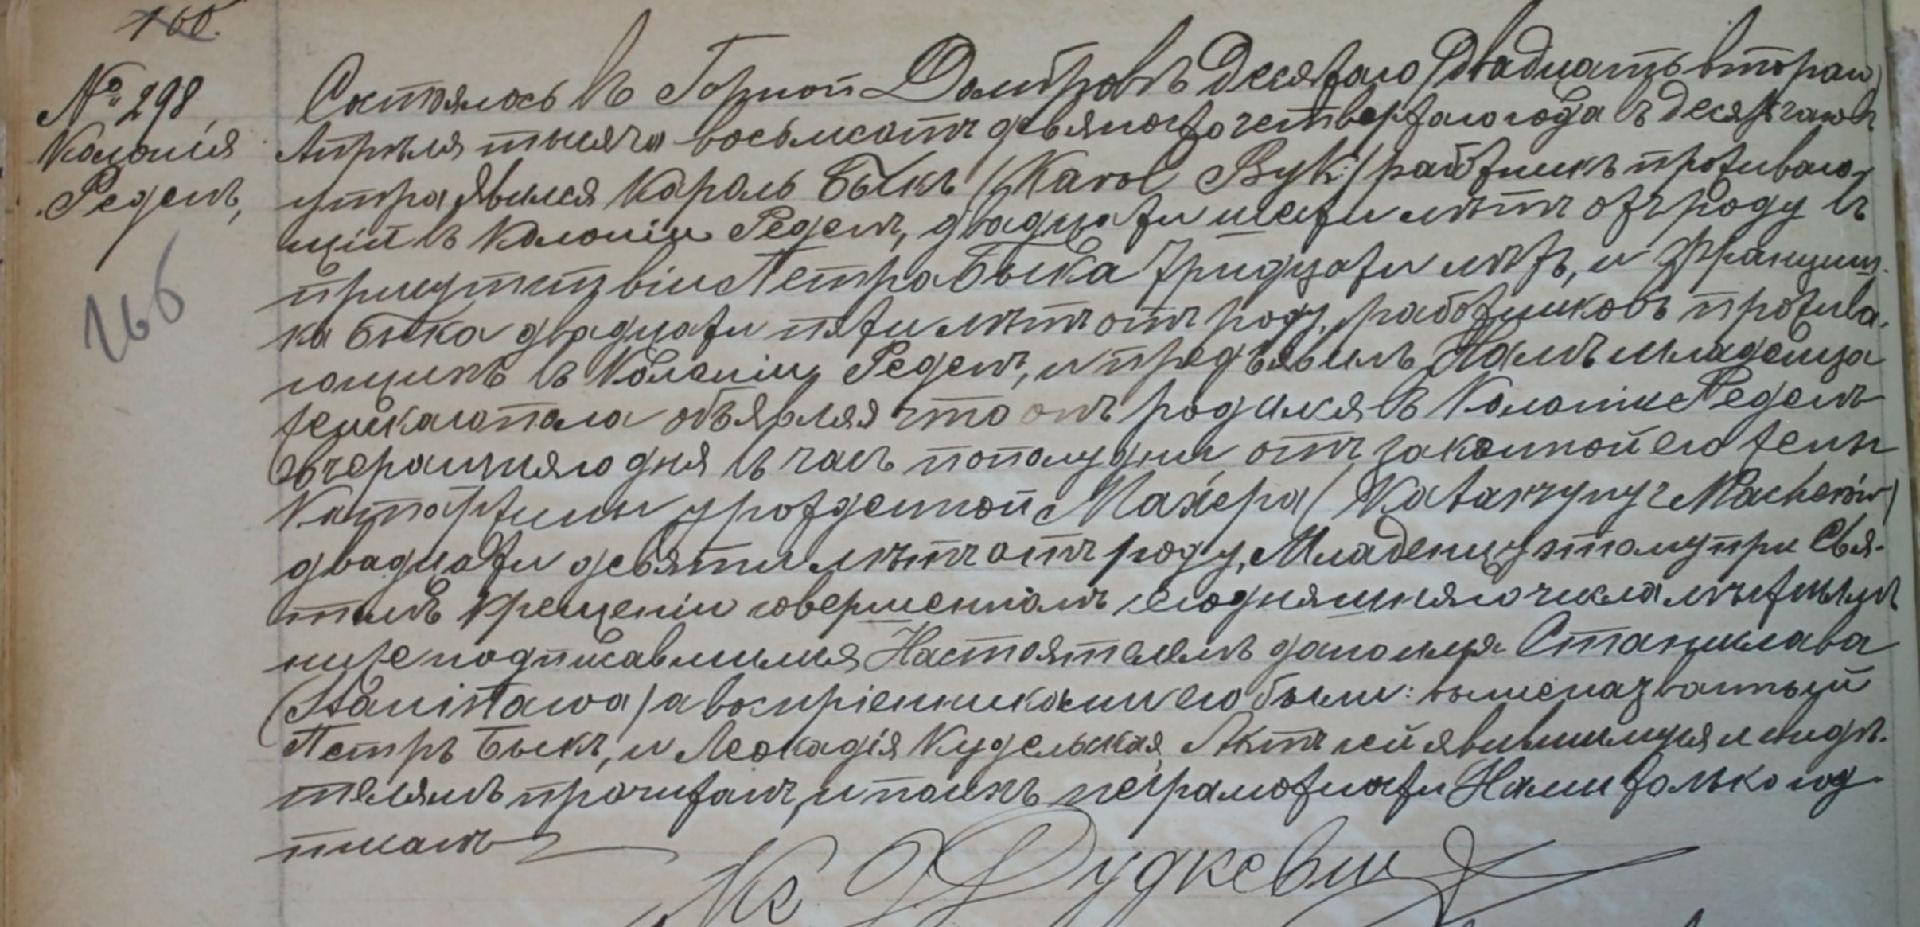 166.
№ 298,
Колонія
Реденъ,
166
Состоялось въ Горной Домбровѣ Десятаго (Двадцать втораго)
Апрѣля тысяча восемьсотъ девяносто четвертаго года въ десять часовъ
утра Явился Кароль Быкъ (Karol Byk) работникъ проживаю-
щій въ Колоніи Реденъ, двадцати шести лѣтъ отъ роду въ
присутствіи Петра Быка тридцати лѣтъ, и Франциш-
ка Быка двадцати пяти лѣтъ отъ роду, работниковъ прожива-
ющихъ въ Колоніи Реденъ, и предъявилъ Намъ младенца
мужскаго пола объявляя что онъ родился въ Колоніи Реденъ
вчерашняго дня въ часъ пополудни отъ законной его жены
Катаржины урожденной Махера (Katarzyny z Macherów)
двадцати девяти лѣтъ отъ роду, Младенцу этому при Свя-
томъ Крещеніи совершенномъ сегодняшняго числа
ниже подписавшимся Настоятелемъ дано имя Станислава
(Stanisława) а воспріемниками его были: вышеназванный
Петръ Быкъ, и Леокадія Кудельская, Актъ сей явившимуся и свидѣ-
телямъ прочитанъ, и по ихъ неграмотности Нами только под
писанъ
Рудкевич